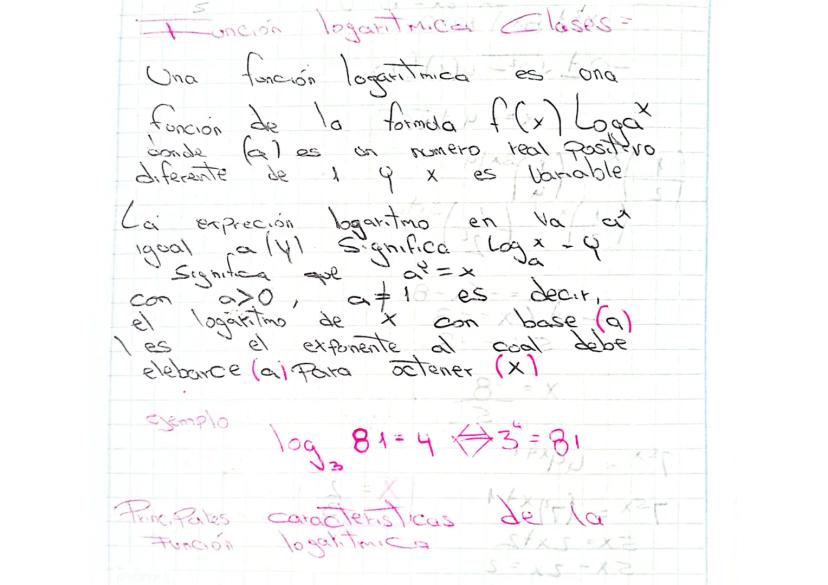 Función logaritmica Clases=
Una función logaritmica es una
función de la formula f(x) Logaˣ
donde (a) es un numero real positivo
diferente de 1 y x es Variable
La expreción logaritmo en Va aˣ
igual a (y) Significa Logₐˣ - y
Significa que aʸ = x
con a>0, a≠1 es decir,
el logaritmo de x con base (a)
es el exponente al coal debe
elebarce (a) Para octener (x)
ejemplo
log₃ 81 = 4 ⇔ 3⁴ = 81
Principales caracteristicas de la
Función logaritmica